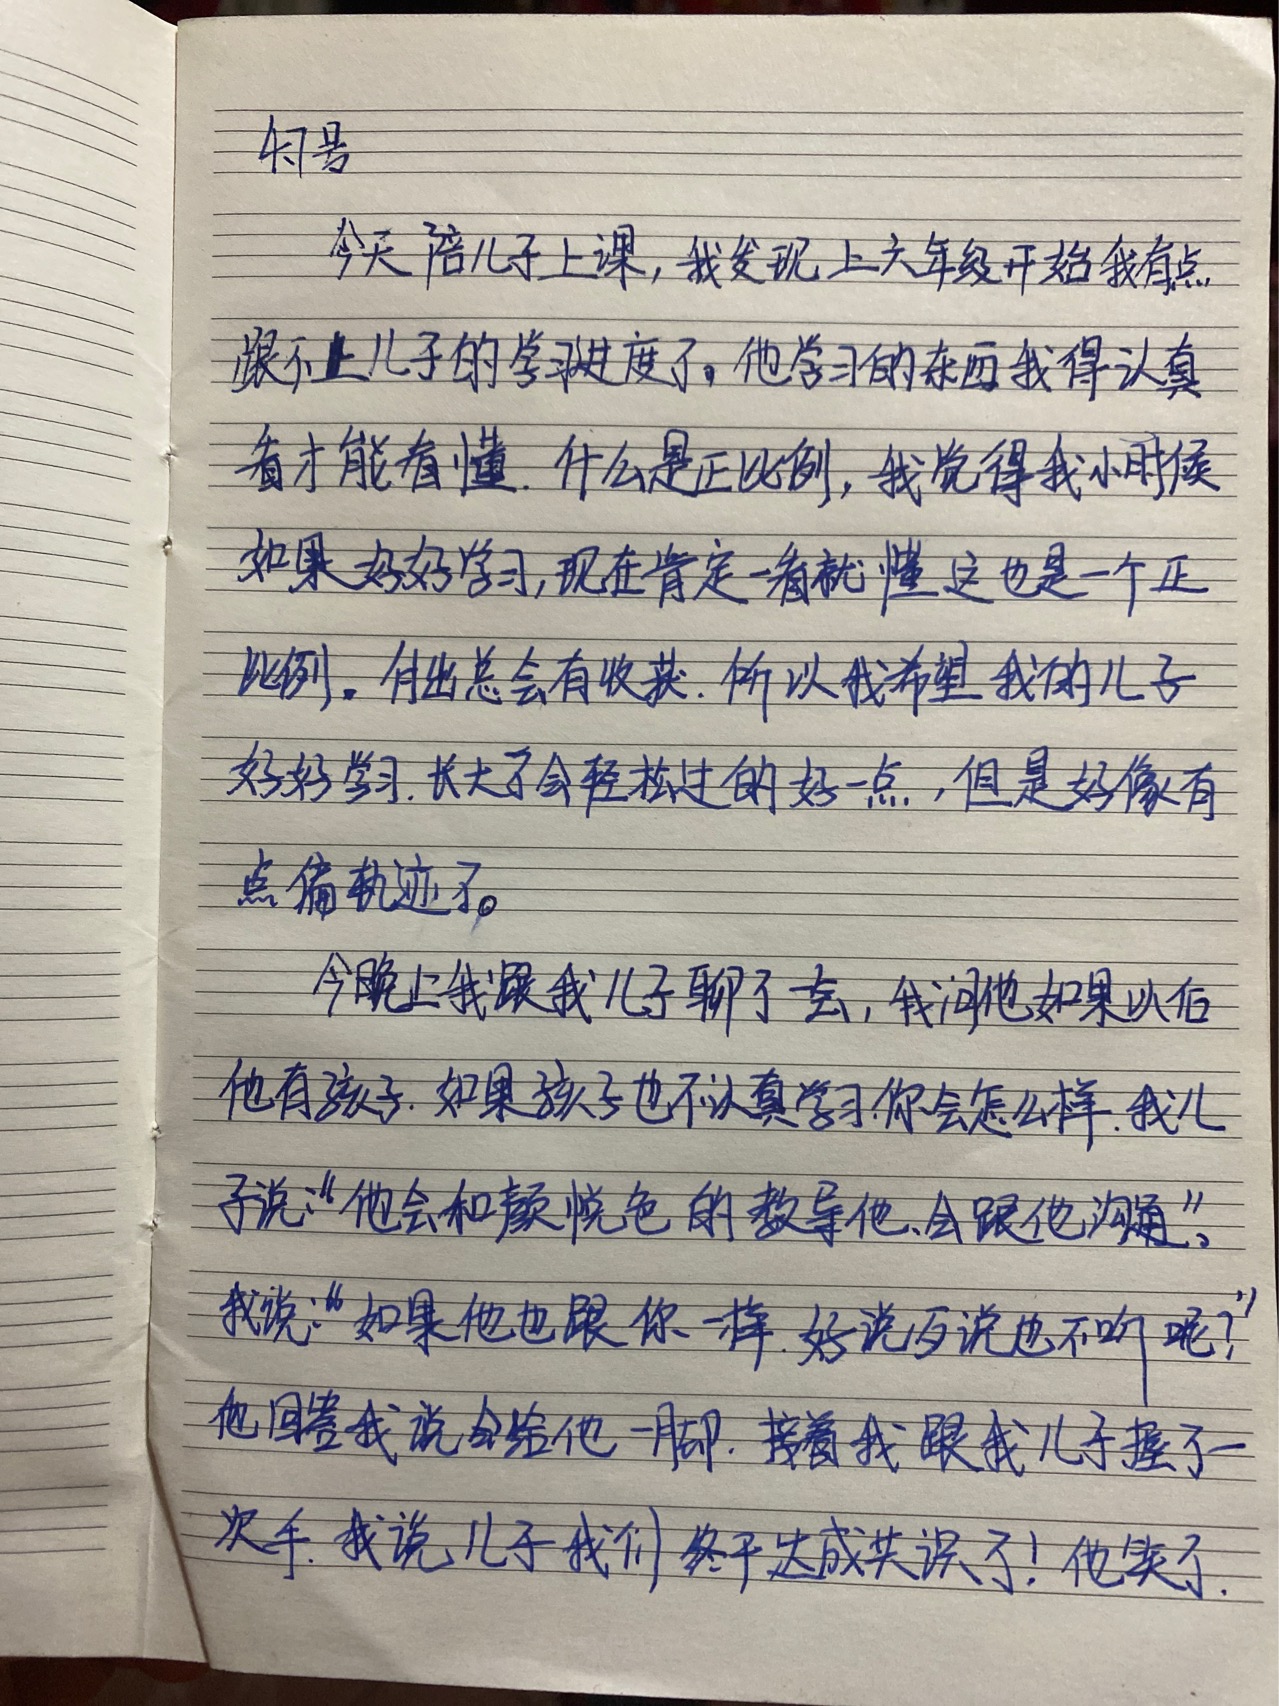 号
今天陪儿子上课，我发现上六年级开始我有点
跟不上儿子的学习进度了。他学习的东西我得认真
看才能看懂.什么是正比例，我觉得我小时候
如果好好学习，现在肯定一看就懂这也是一个正
比例。付出总会有收获.所以我希望我的儿子
好好学习.长大了会轻松过的好一点，但是好像有
点偏轨迹了。
今晚上我跟我儿子聊了去，我问他如果以后
他有孩子.如果孩子也不认真学习.你会怎么样.我儿
子说:“他会和颜悦色的教导他、会跟他沟通”。
我说:“如果他也跟你一样.好说歹说也不听呢?”
他回答我说会给他一脚.接着我跟我儿子握了一
次手.我说儿子我们终于达成共识了!他笑了.